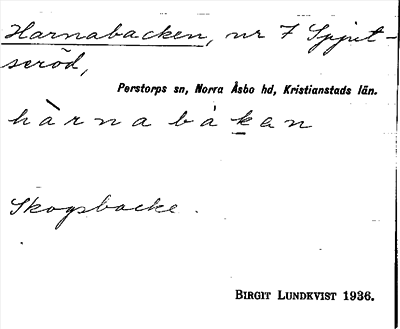 Harnabacken, nr 7 Spjut-
seröd,
Perstorps sn, Norra Åsbo hd, Kristianstads län.
hàrnabákan
Skogsbacke.
BIRGIT LUNDKVIST 1936.